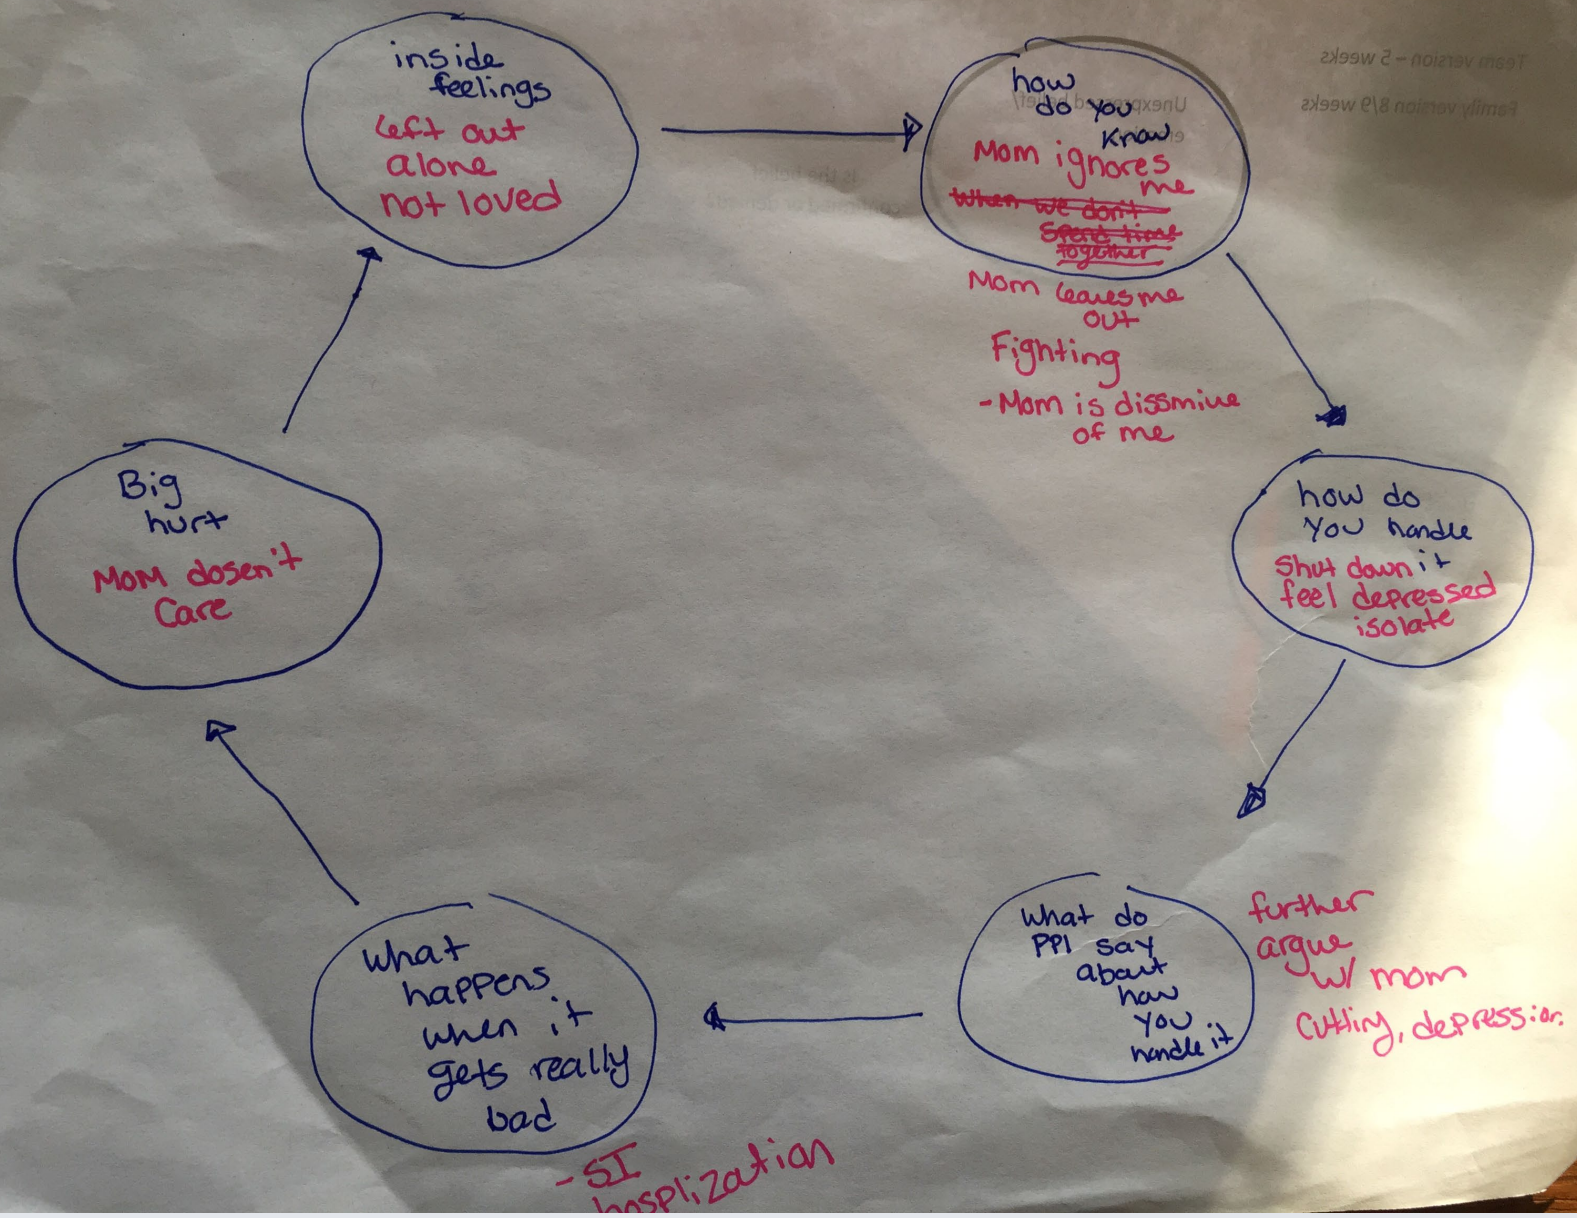 inside
feelings
left out
alone
not loved
how
do you
know
Mom ignores
me
When we don't
Spend time
together
Mom leaves me
out
Fighting
- Mom is dissmive
of me
how do
you handle
it
Shut down
feel depressed
isolate
what do
PPl say
about
how
you
handle it
further
argue
w/ mom
cutting, depression.
what
happens
when it
gets really
bad
- SI
hosplization
Big
hurt
Mom dosen't
Care
Team version – 5 weeks
Family version 8/9 weeks
Is the belief
confirmed or denied?